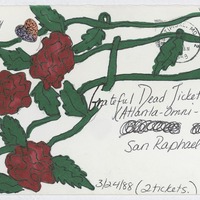 Grateful Dead Ticket
(Atlanta-Omni-
San Raphael
3/24/88 (2 tickets.)